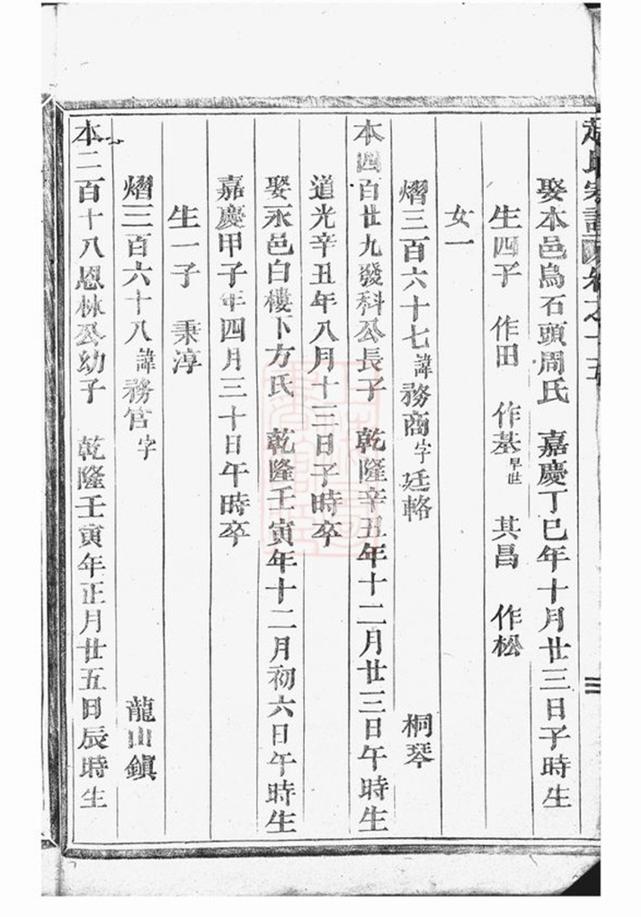 氏家譜 卷之十五
娶本邑烏石頭周氏 嘉慶丁巳年十月廿三日子時生
生四子 作田 作基早世 其昌 作松
女一
熠三百六十七諱務商字廷輅 桐琴
本四百廿九發科公長子 乾隆辛丑年十二月廿三日午時生
道光辛丑年八月十三日子時卒
娶永邑白樓下方氏 乾隆壬寅年十二月初六日午時生
嘉慶甲子年四月三十日午時卒
生一子 秉淳
熠三百六十八諱務官字 龍山鎮
本二百十八恩林公幼子 乾隆壬寅年正月廿五日辰時生